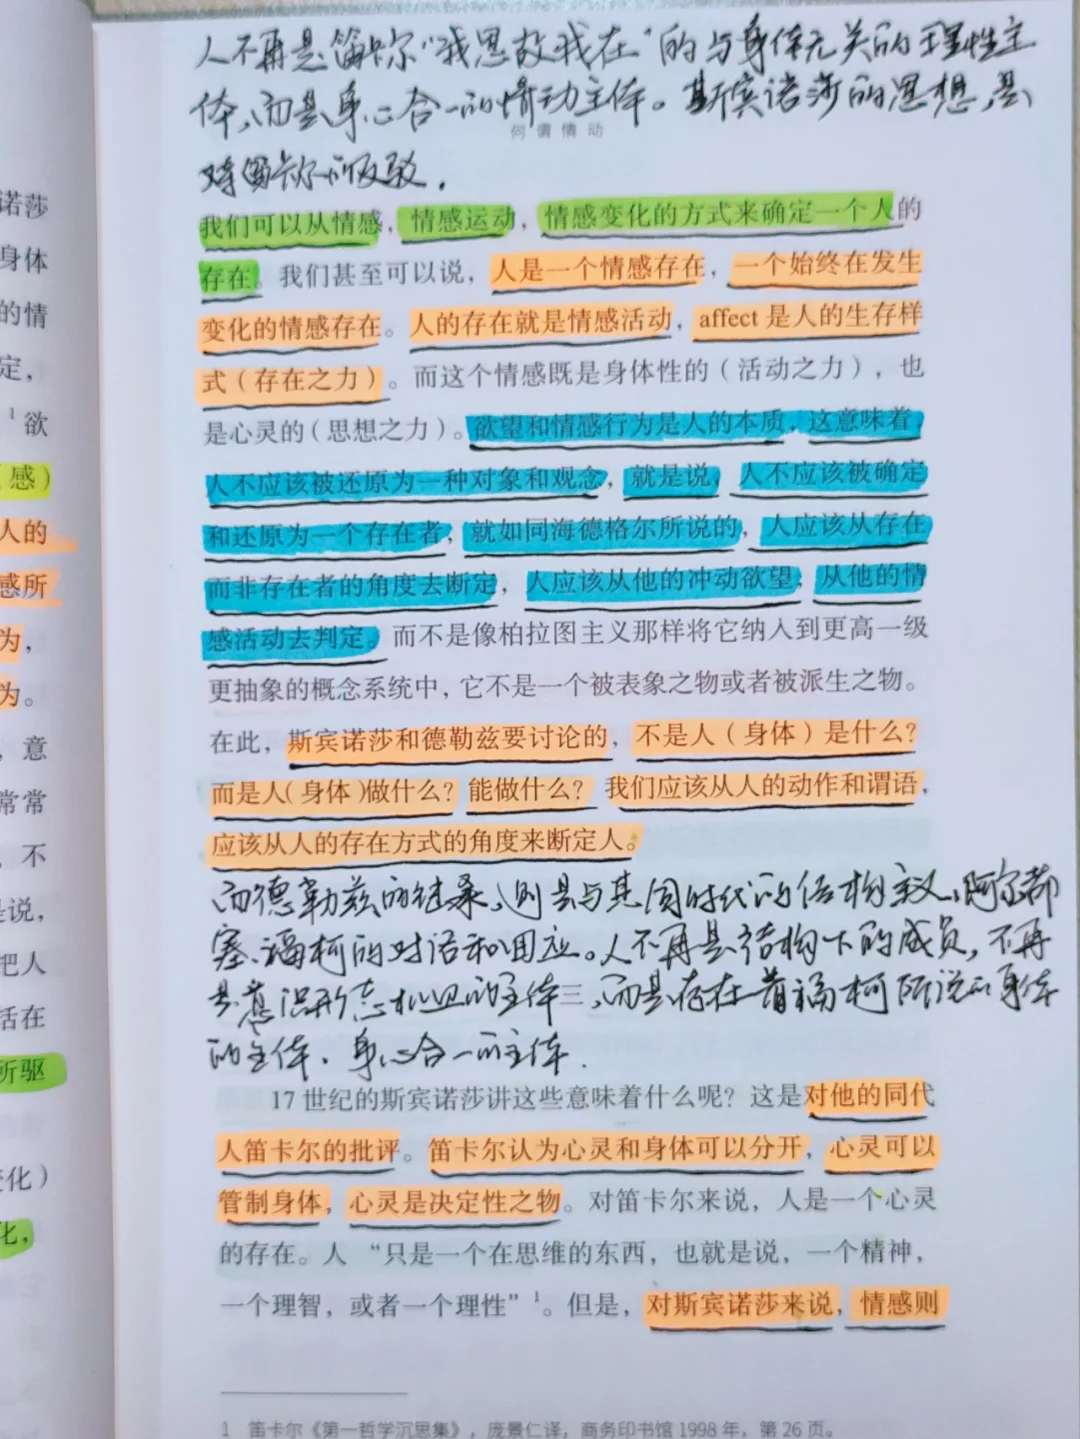 人不再是笛卡尔“我思故我在”的与身体无关的理性主
体，而是身心合一的情动主体。斯宾诺莎的思想，是
何谓情动
对笛卡尔的反驳.
我们可以从情感，情感运动，情感变化的方式来确定一个人的
存在。我们甚至可以说，人是一个情感存在，一个始终在发生
变化的情感存在。人的存在就是情感活动，affect 是人的生存样
式（存在之力）。而这个情感既是身体性的（活动之力），也
是心灵的（思想之力）。欲望和情感行为是人的本质，这意味着
人不应该被还原为一种对象和观念，就是说，人不应该被确定
和还原为一个存在者，就如同海德格尔所说的，人应该从存在
而非存在者的角度去断定，人应该从他的冲动欲望，从他的情
感活动去判定。而不是像柏拉图主义那样将它纳入到更高一级
更抽象的概念系统中，它不是一个被表象之物或者被派生之物。
在此，斯宾诺莎和德勒兹要讨论的，不是人（身体）是什么？
而是人（身体）做什么？能做什么？我们应该从人的动作和谓语，
应该从人的存在方式的角度来断定人。
而德勒兹的继承，则是与其同时代的结构主义、阿尔都
塞、福柯的对话和回应。人不再是结构下的成员，不再
是意识形态机器的主体，而是存在着福柯所说的身体
的主体，身心合一的主体.
17 世纪的斯宾诺莎讲这些意味着什么呢？这是对他的同代
人笛卡尔的批评。笛卡尔认为心灵和身体可以分开，心灵可以
管制身体，心灵是决定性之物。对笛卡尔来说，人是一个心灵
的存在。人“只是一个在思维的东西，也就是说，一个精神，
一个理智，或者一个理性”1。但是，对斯宾诺莎来说，情感则
1 笛卡尔《第一哲学沉思集》，庞景仁译，商务印书馆 1998 年，第 26 页。
诺莎
身体
的情
定，
1 欲
（感）
人的
感所
为，
为。
，意
常常
，不
是说，
把人
活在
所驱
变化）
化，